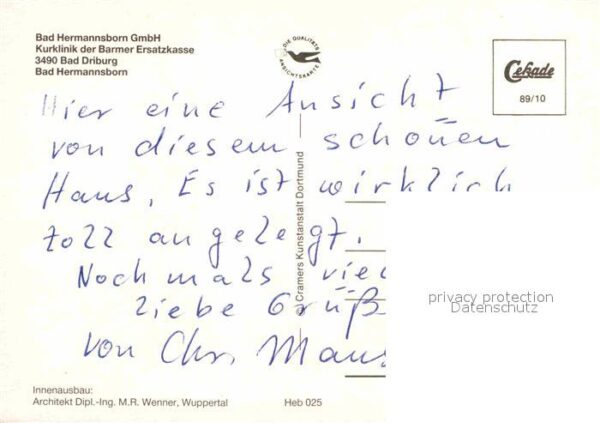 Bad Hermannsborn GmbH
Kurklinik der Barmer Ersatzkasse
3490 Bad Driburg
Bad Hermannsborn
DIE QUALITÄTS
ANSICHTSKARTE
Cekade
89/10
Hier eine Ansicht
von diesem schönen
Haus, Es ist wirklich
toll angelegt.
Nochmals viel
liebe Grüß
von Chr.
© Cramers Kunstanstalt Dortmund
privacy protection
Datenschutz
Innenausbau:
Architekt Dipl.-Ing. M.R. Wenner, Wuppertal
Heb 025